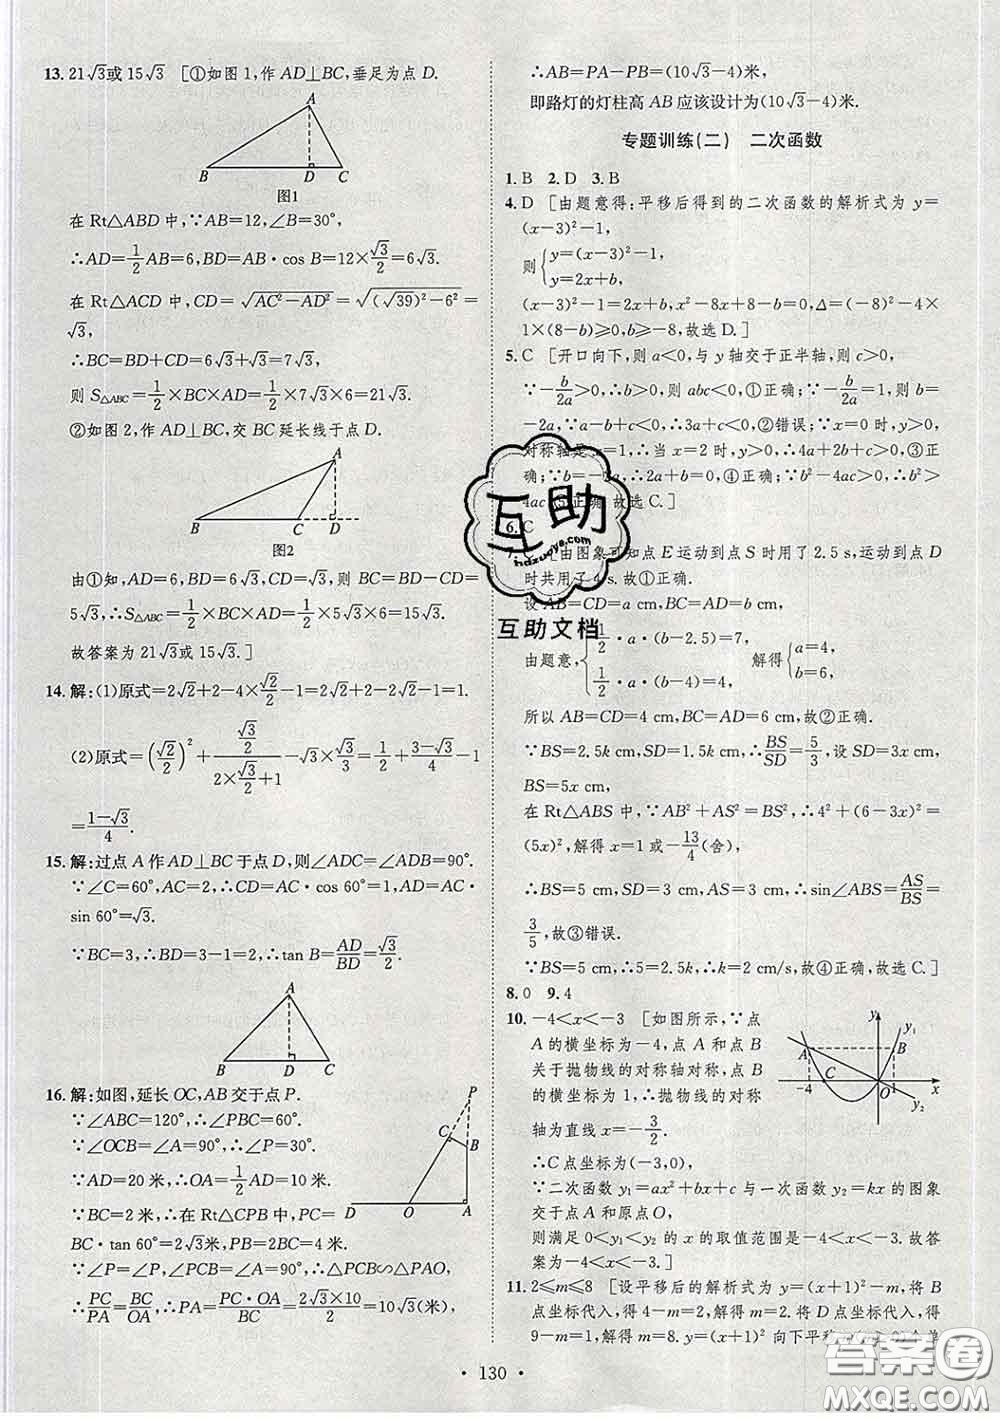 13. 21√3或15√3 [①如图1,作AD⊥BC,垂足为点D.
A
B D C
图1
在Rt△ABD中,∵AB=12,∠B=30°,
∴AD=1/2AB=6,BD=AB·cos B=12×√3/2=6√3.
在Rt△ACD中,CD=√(AC²-AD²)=√((√39)²-6²)=
√3,
∴BC=BD+CD=6√3+√3=7√3,
则S△ABC=1/2×BC×AD=1/2×7√3×6=21√3;
②如图2,作AD⊥BC,交BC延长线于点D.
A
B C D
图2
由①知,AD=6,BD=6√3,CD=√3,则BC=BD-CD=
5√3,∴S△ABC=1/2×BC×AD=1/2×5√3×6=15√3.
故答案为21√3或15√3.]
14. 解:(1)原式=2√2+2-4×√2/2-1=2√2+2-2√2-1=1.
(2)原式=(√2/2)²+(√3/2)/(2×√3/2+1)-√3×√3/3=1/2+(3-√3)/4-1
=(1-√3)/4.
15. 解:过点A作AD⊥BC于点D,则∠ADC=∠ADB=90°.
∵∠C=60°,AC=2,∴CD=AC·cos 60°=1,AD=AC·
sin 60°=√3.
∵BC=3,∴BD=3-1=2,∴tan B=AD/BD=√3/2.
A
B D C
16. 解:如图,延长OC,AB交于点P.
∵∠ABC=120°,∴∠PBC=60°.
∵∠OCB=∠A=90°,∴∠P=30°.
∵AD=20米,∴OA=1/2AD=10米.
∵BC=2米,∴在Rt△CPB中,PC=
BC·tan 60°=2√3米,PB=2BC=4米.
∵∠P=∠P,∠PCB=∠A=90°,∴△PCB∽△PAO,
∴PC/PA=BC/OA,∴PA=PC·OA/BC=2√3×10/2=10√3(米),
P
C
B
D O A
∴AB=PA-PB=(10√3-4)米,
即路灯的灯柱高AB应该设计为(10√3-4)米.
专题训练(二) 二次函数
1. B 2. D 3. B
4. D [由题意得:平移后得到的二次函数的解析式为y=
(x-3)²-1,
则{y=(x-3)²-1,
y=2x+b,
(x-3)²-1=2x+b,x²-8x+8-b=0,Δ=(-8)²-4×
1×(8-b)≥0,b≥-8,故选D.]
5. C [开口向下,则a<0,与y轴交于正半轴,则c>0,
∵-b/2a>0,∴b>0,则abc<0,①正确;∵-b/2a=1,则b=
-2a,∵a-b+c<0,∴3a+c<0,②错误;∵x=0时,y>0,
对称轴是x=1,∴当x=2时,y>0,∴4a+2b+c>0,③正
确;∵b=-2a,∴2a+b=0,④正确;∵b²-4ac>0,∴b²>
4ac,⑤正确.故选C.]
6. C
[由图象可知点E运动到点S时用了2.5 s,运动到点D
时共用了4 s.故①正确.
设AB=CD=a cm,BC=AD=b cm,
由题意,{1/2·a·(b-2.5)=7,
1/2·a·(b-4)=4, 解得{a=4,
b=6,
所以AB=CD=4 cm,BC=AD=6 cm,故②正确.
∵BS=2.5k cm,SD=1.5k cm,∴BS/SD=5/3,设SD=3x cm,
BS=5x cm,
在Rt△ABS中,∵AB²+AS²=BS²,∴4²+(6-3x)²=
(5x)²,解得x=1或-13/4(舍),
∴BS=5 cm,SD=3 cm,AS=3 cm,∴sin∠ABS=AS/BS=
3/5,故③错误.
∵BS=5 cm,∴5=2.5k,∴k=2 cm/s,故④正确,故选C.]
8. 0 9. 4
10. -4<x<-3 [如图所示,∵点
A的横坐标为-4,点A和点B
关于抛物线的对称轴对称,点B
横坐标为1,∴抛物线的对称
轴为直线x=-3/2.
∴C点坐标为(-3,0),
∵二次函数y₁=ax²+bx+c与一次函数y₂=kx的图象
交于点A和原点O,
则满足0<y₁<y₂的x的取值范围是-4<x<-3.故答
案为-4<x<-3.]
y y₁
A B
C
-4 O 1 x
y₂
11. 2≤m≤8 [设平移后的解析式为y=(x+1)²-m,将B
点坐标代入,得4-m=2,解得m=2.将D点坐标代入,得
9-1=m,解得m=8.y=(x+1)²向下平移
• 130 •
互助
hdzuoye.com
互助文档
答案圈
MXQE.COM